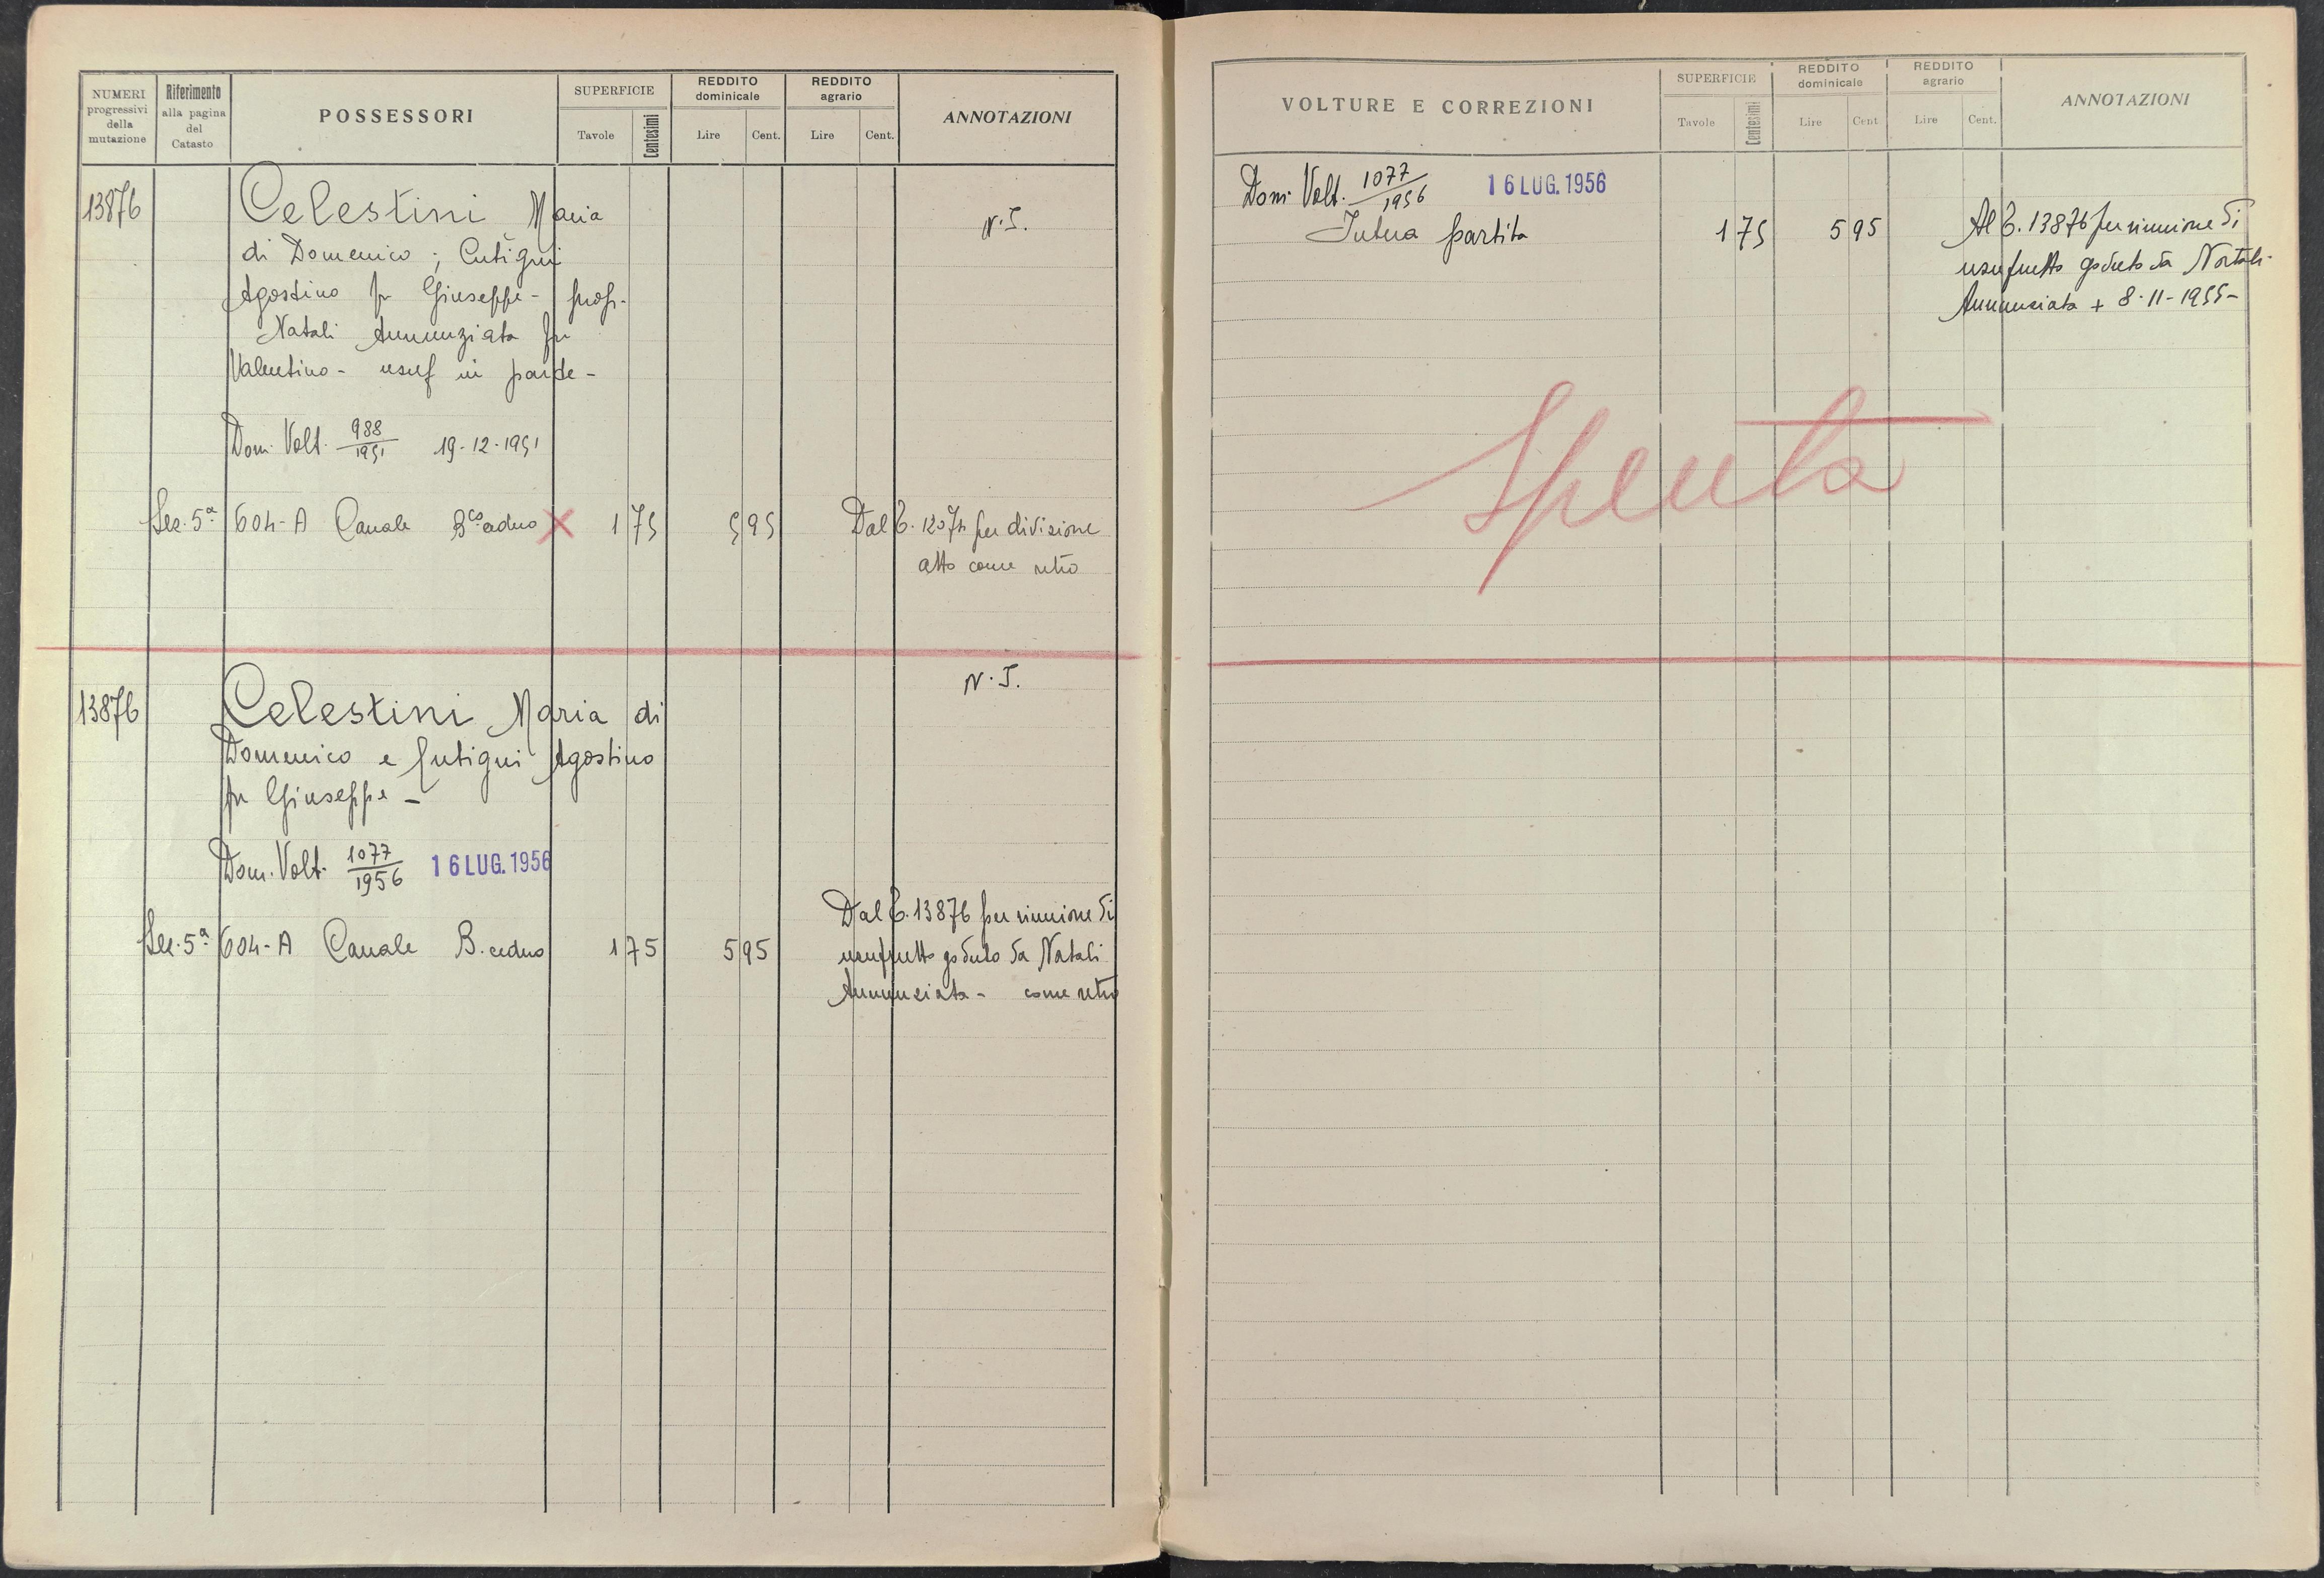 NUMERI progressivi della mutazione
Riferimento alla pagina del Catasto
POSSESSORI
SUPERFICIE
Tavole
Centesimi
REDDITO dominicale
Lire
Cent.
REDDITO agrario
Lire
Cent.
ANNOTAZIONI
13876
Celestini Maria
N.I.
di Domenico; Cutigni
Agostino fu Giuseppe - prop.
Natali Annunziata fu
Valentino - usuf in parte -
Dom. Volt. 988/1951 19-12-1951
Sez. 5ª 604-A Canale B.co ceduo X 1 75 5 95 Dal C. 12074 per divisione
atto come retro
N.I.
13876
Celestini Maria di
Domenico e Cutigni Agostino
fu Giuseppe -
Dom. Volt. 1077/1956 16 LUG. 1956
Dal C. 13876 per riunione di
Sez. 5ª 604-A Canale B. ceduo 1 75 5 95 usufrutto goduto da Natali
Annunziata - come retro
VOLTURE E CORREZIONI
SUPERFICIE
Tavole
Centesimi
REDDITO dominicale
Lire
Cent.
REDDITO agrario
Lire
Cent.
ANNOTAZIONI
Dom. Volt. 1077/1956 16 LUG. 1956
Intera partita 1 75 5 95 Al C. 13876 per riunione di
usufrutto goduto da Natali
Annunziata + 8-11-1955-
Spenta